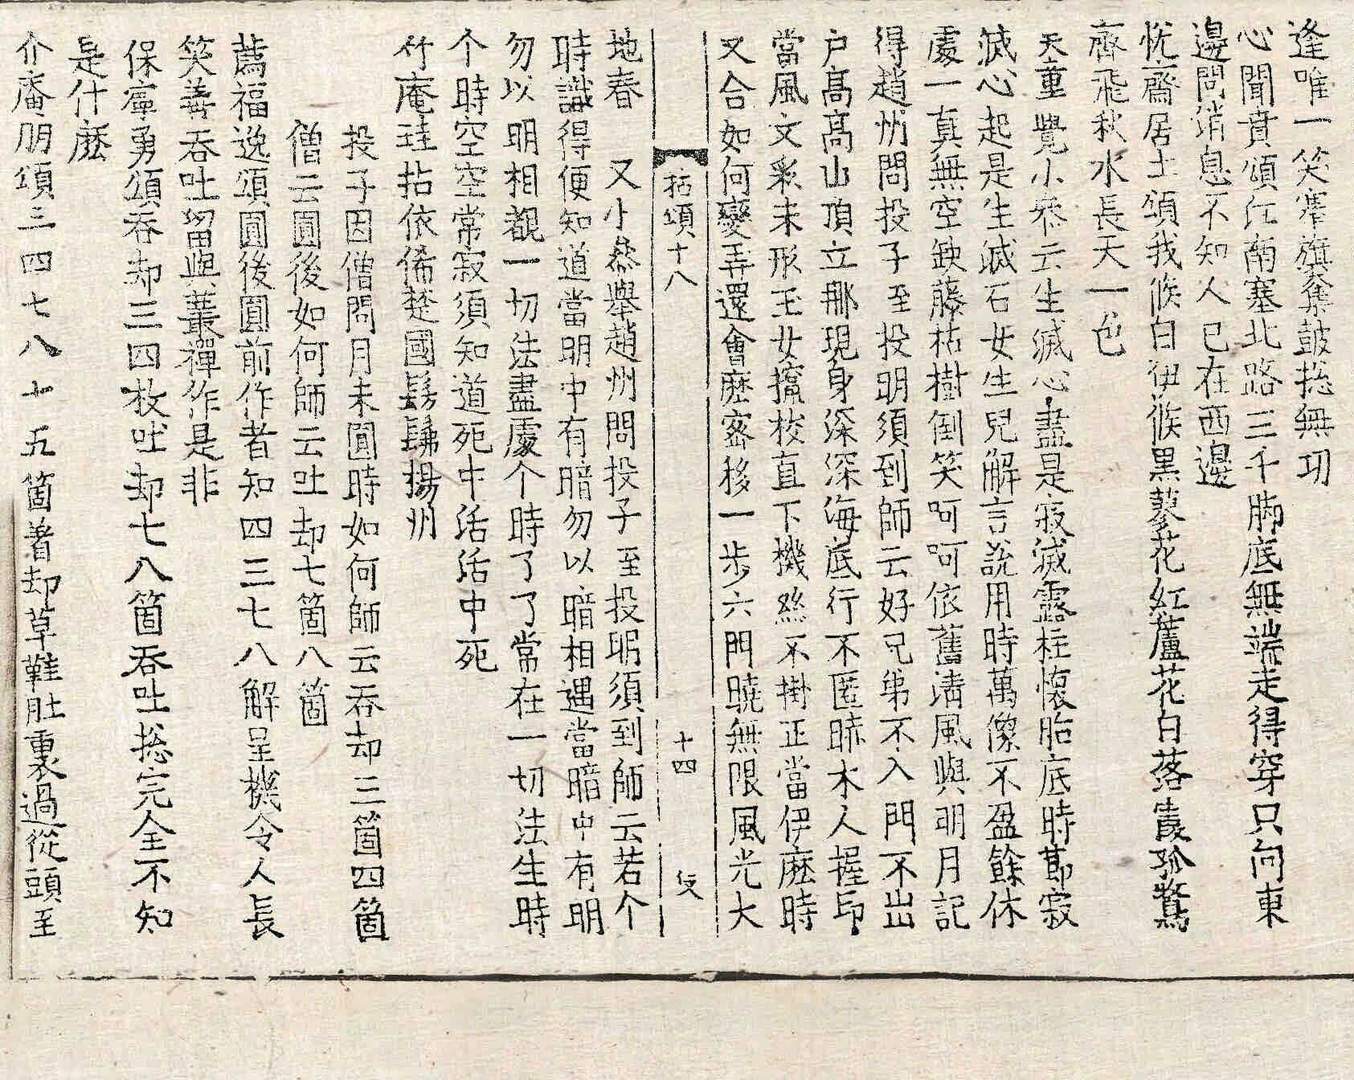 逢唯一笑搴旗奪鼓捴無功
心聞賁頌江南塞北路三千脚底無端走得穿只向東
邊問消息不知人已在西邊
悅齋居士頌我倏白伊倏黑蓼花紅蘆花白落霞孤鶩
齊飛秋水長天一色
天童覺小叅云生滅心盡是㝛滅露柱懷胎底時莭寂
滅心起是生滅石女生兒解言說用時萬像不盈餘休
處一真無空缺藤枯樹倒笑呵呵依舊清風與明月記
得趙州問投子至投明須到師云好兄弟不入門不出
户髙髙山頂立那現身深深海底行不匿跡木人握印
當風文彩未形玉女攛梭直下機絲不掛正當伊麽時
又合如何變弄還會麽密移一步六門曉無限風光大
拈頌十八
十四
攵
地春　又小叅舉趙州問投子至投明須到師云若个
時識得便知道當明中有暗勿以暗相遇當暗中有明
勿以明相覩一切法盡處个時了了常在一切法生時
个時空空常寂須知道死中活活中死
竹庵珪拈依俙楚國髣髴揚州
投子因僧問月未圓時如何師云吞却三箇四箇
僧云圓後如何師云吐却七箇八箇
薦福逸頌圓後圓前作者知四三七八解呈機令人長
笑善吞吐留與叢禪作是非
保寧勇頌吞却三四枚吐却七八箇吞吐捴完全不知
是什麽
介庵朋頌三四七八十五箇著却草鞋肚裏過從頭至